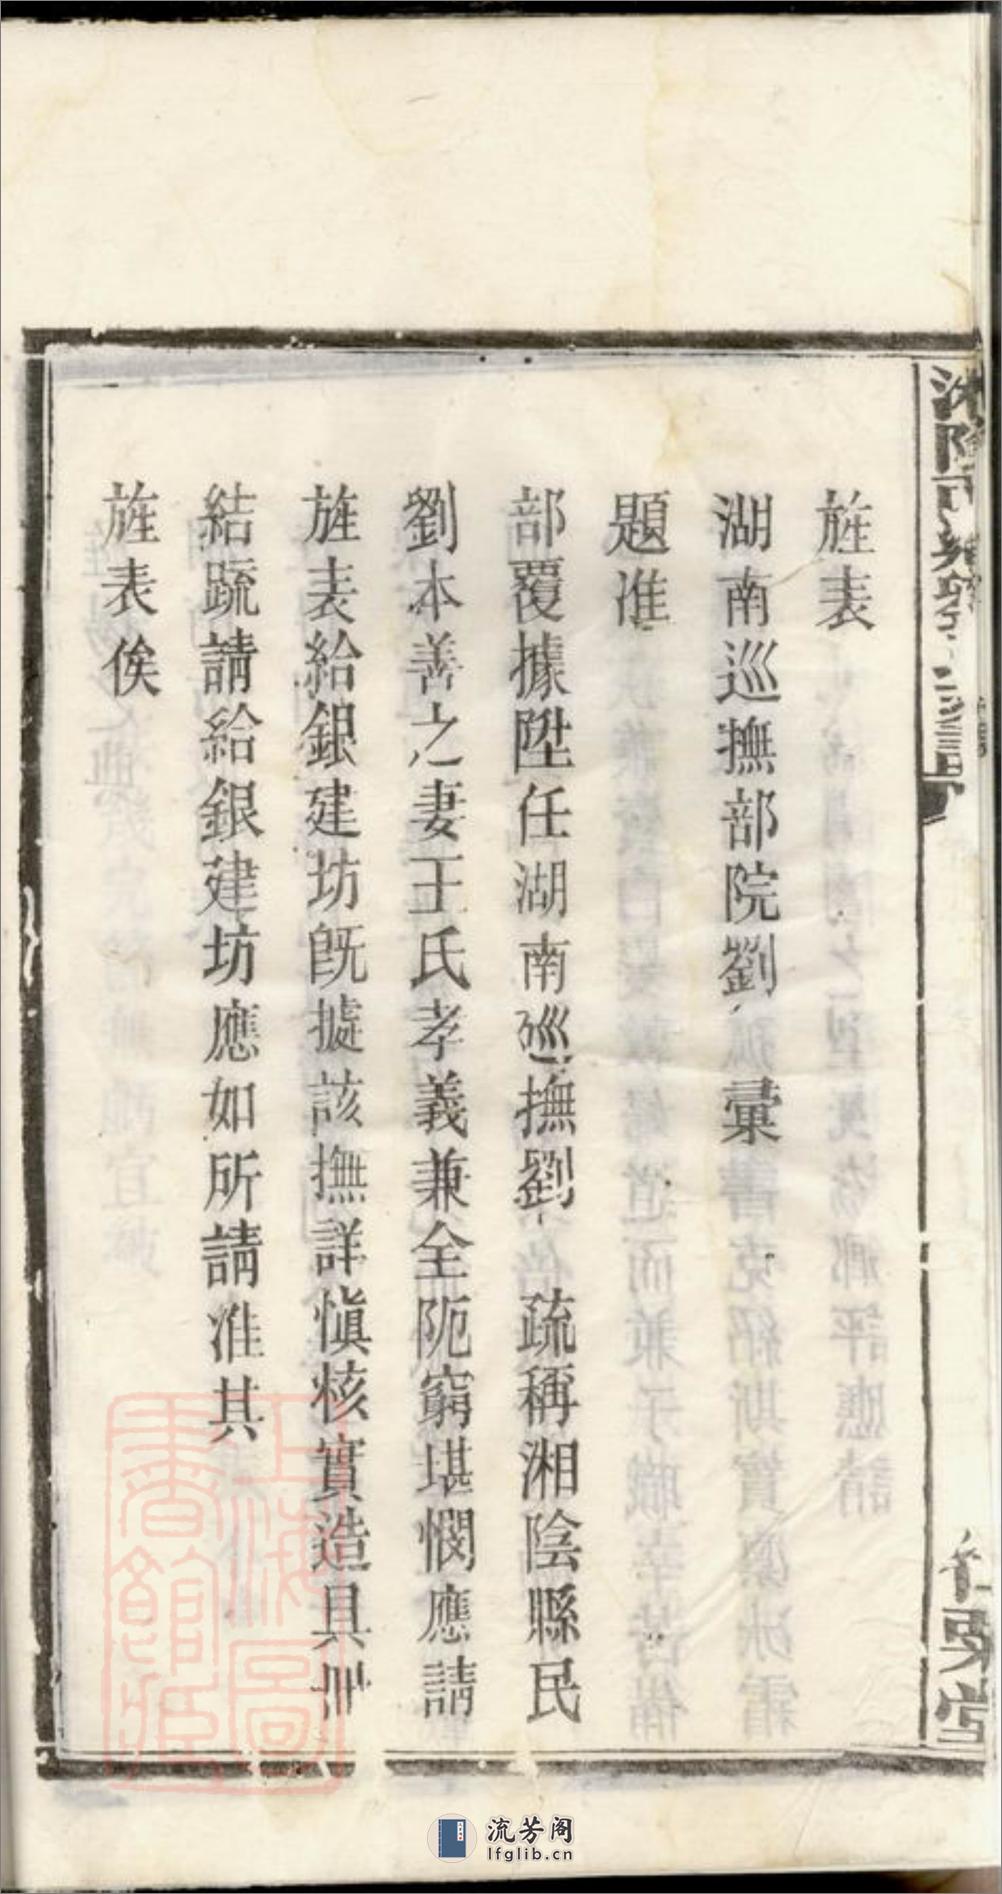 旌表
湖南巡撫部院劉　彙
題准
部覆據陞任湖南巡撫劉　疏稱湘陰縣民
劉本善之妻王氏孝義兼全阨窮堪憫應請
旌表給銀建坊旣據該撫詳愼核實造具冊
結疏請給銀建坊應如所請准其
旌表俟
上海圖書館藏
流芳阁
lfglib.cn